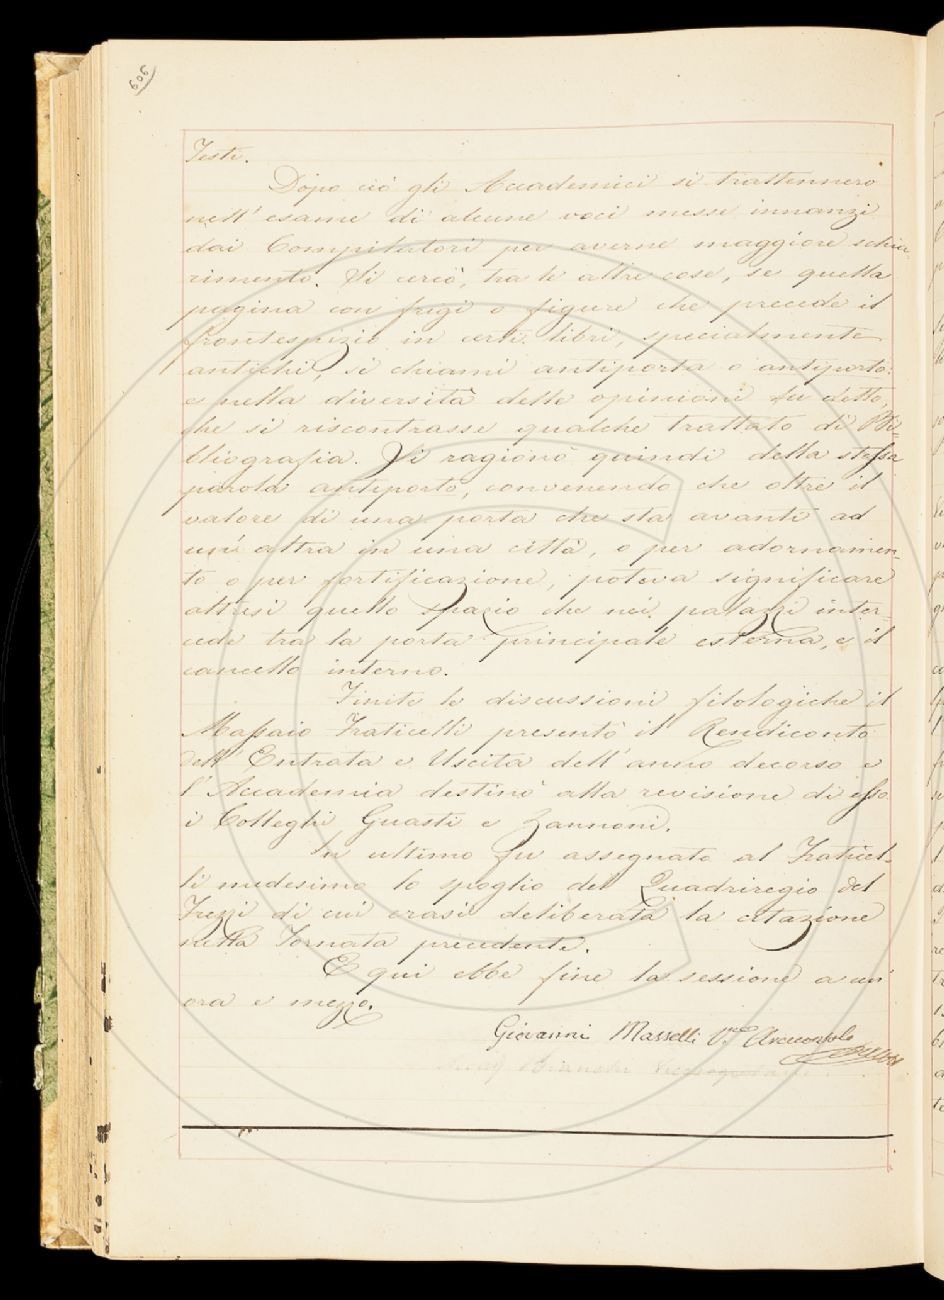 606
Testi.
Dopo ciò gli Accademici si trattennero
nell' esame di alcune voci messe innanzi
dai Compilatori per averne maggiore schia-
rimento. Si cercò, tra le altre cose, se quella
pagina con fregi o figure che precede il
frontespizio in certi libri, specialmente
antichi, si chiami antiporta o antiporto:
e nella diversità delle opinioni fu detto,
che si riscontrasse qualche trattato di Bi-
bliografia. Si ragionò quindi della stessa
parola antiporto, convenendo che oltre il
valore di una porta che sta avanti ad
un' altra in una città, o per adornamen-
to o per fortificazione, poteva significare
altresì quello spazio che nei palazzi inter-
cede tra la porta principale esterna, e il
cancello interno.
Finite le discussioni filologiche il
Massaio Fraticelli presentò il Rendiconto
dell' Entrata e Uscita dell' anno decorso e
l' Accademia destinò alla revisione di esso
i Colleghi Guasti e Zannoni.
In ultimo fu assegnato al Fraticel-
li medesimo lo spoglio del Quadriregio del
Frezzi di cui erasi deliberata la citazione
nella Tornata precedente.
E qui ebbe fine la sessione a un'
ora e mezzo.
Giovanni Masselli V.ce Arciconsolo
Bianchi